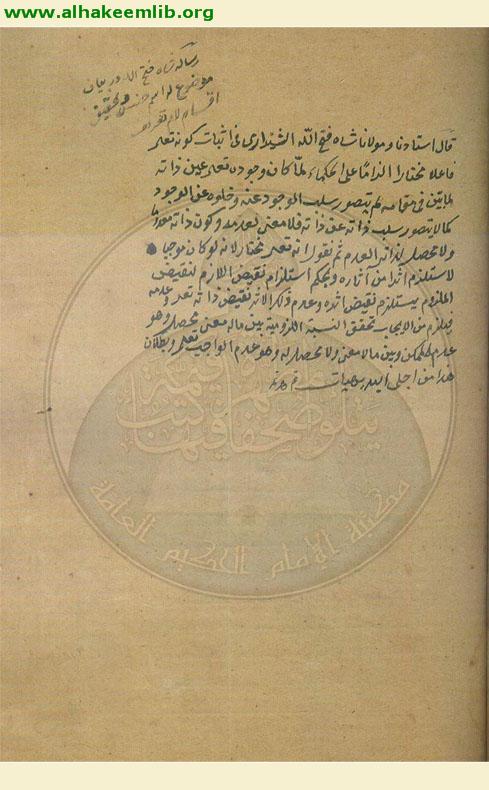 www.alhakeemlib.org
رساله شاه فتح الله در بيان
موضوع له اسم جنس و تحقيق
اقسام لام تعريف
قال استادنا و مولانا شاه فتح الله الشيرازى فى اثبات كونه تعم
فاعلا مختارا الزاما على الحكماء لما كان وجوده تعم عين ذاته
كما بين فى مقامه لم يتصور سلب الوجود عنه و خلوه عن الوجود
كما لا يتصور سلب ذاته عن ذاته فلا معنى لعدمه و كون ذاته معدوما
ولا محصل لذاته العدم ثم نقول انه تعم مختار لانه لو كان موجبا
لاستلزم اثرا من آثاره و بحكم استلزام نقيض اللازم لنقيض
الملزوم يستلزم نقيض اثره و عدم ذلك الاثر نقيض ذاته تعم و عدمه
فيلزم من الايجاب تحقق النسبة اللزومية بين ما له معنى محصل و هو
عدم الممكن و بين ما لا معنى ولا محصل له و هو عدم الواجب تعم و بطلان
هذا من اجلى البديهيات
مكتبة الإمام الحكيم العامة